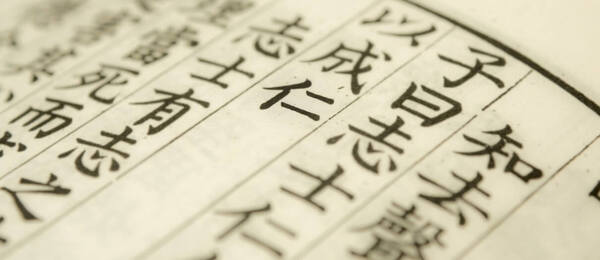 知去聲
子曰志士仁
以成仁
志士有志之
理當死而